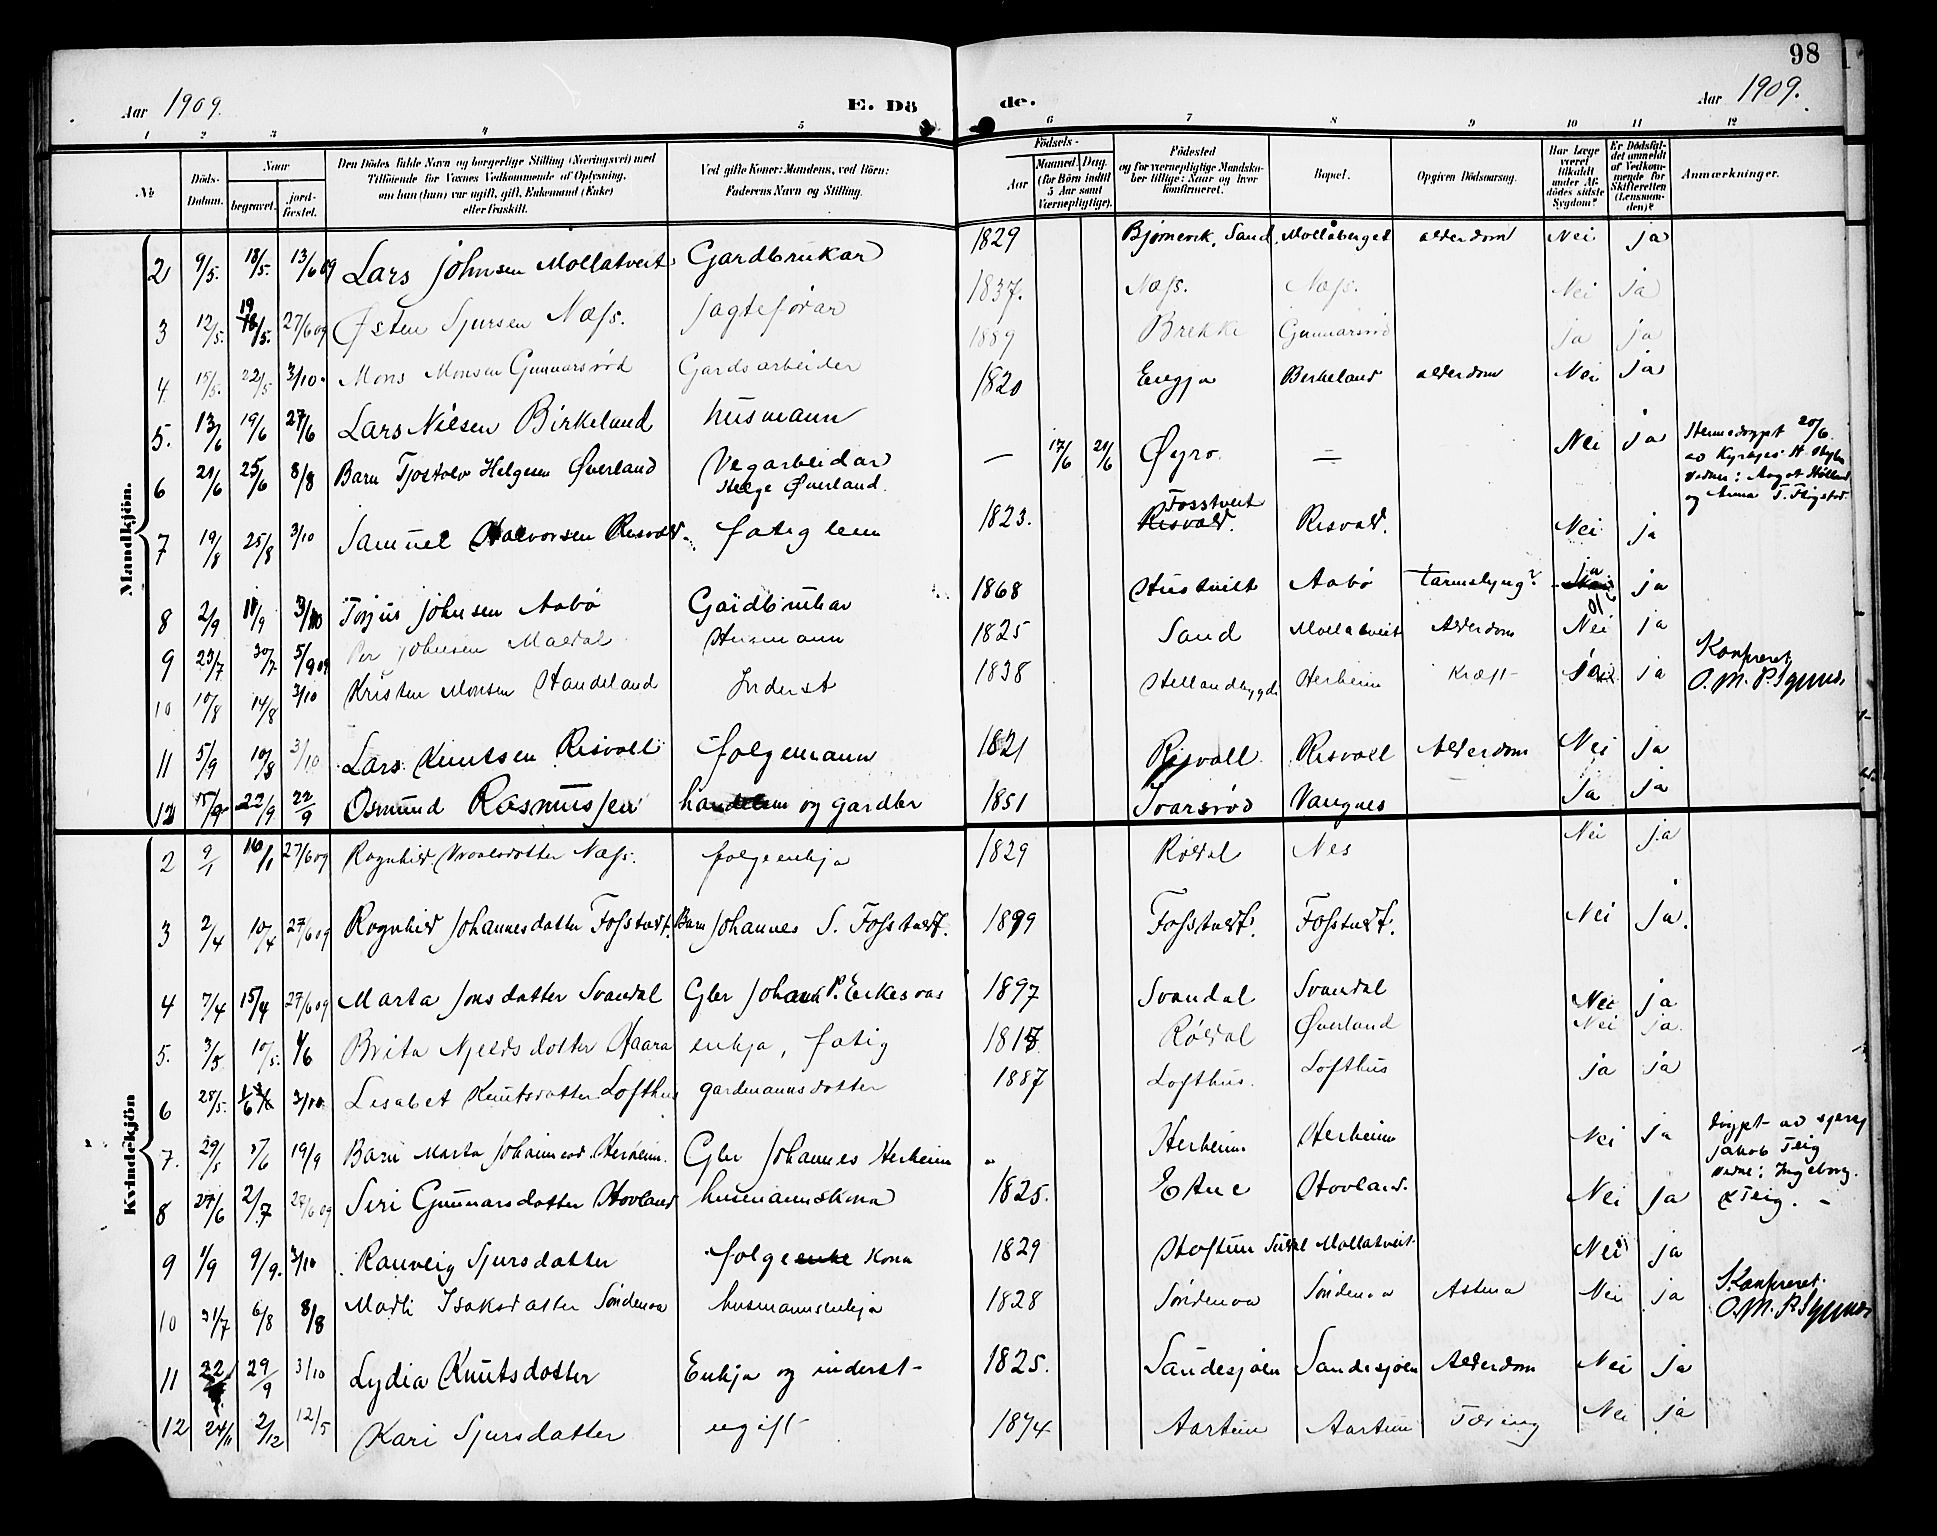 98
Aar 1909.
E. Dö de.
Aar 1909.
1 2 3 4 5 6 7 8 9 10 11 12
No
Döds-Datum.
Naar
begravet.
jordfæstet.
Den Dödes fulde Navn og borgerlige Stilling (Næringsvei) med
Tilföiende for Voxnes Vedkommende af Oplysning,
om han (hun) var ugift, gift, Enkemand (Enke)
eller fraskilt.
Ved gifte Koner: Mandens, ved Börn:
Faderens Navn og Stilling.
Födsels-
Aar
Maaned. Dag.
(for Börn indtil
5 Aar samt
Værnepligtige).
Födested
og for værnepligtige Mandskaber tillige: Naar og hvor
konfirmeret.
Bopæl.
Opgiven Dödsaarsag.
Har Læge
været
tilkaldt
under Afdödes sidste
Sygdom?
Er Dödsfaldet anmeldt
af Vedkommende for
Skifteretten
(Lensmanden)?
Anmærkninger.
Mandkjön.
2 9/5. 18/5. 13/6 09 Lars Johnsen Mollatveit Gardbrukar 1829 Bjørnevik, Sand Mollåberget alderdom Nei ja
3 12/5. 19/5. 27/6 09 Østen Sjursen Næss. Jagteførar 1837. Næss. Næss. Nei ja
4 15/5. 22/5 3/10. Mons Monsen Gunnarsrød Gardsarbeider 1889 Brekke Gunnarsrød ja ja
5. 13/6 19/6 27/6 Lars Nilsen Birkeland husmann 1820 Engja Berkeland alderdom Nei ja
6 21/6 25/6 8/8 Barn Tjostolv Helgesen Øverland Vegarbeidar Helge Øverland. — 17/6 21/6 Øyro — Nei ja Heimedøypt 20/6
Vedne: Aagot Hølland
og Anna T. Flogstad
7 19/8 25/8 3/10 Samuel Halvorsen Risvold fatig lem 1823. Fosstveit Risvold. Risvold. Nei ja
8 2/9 11/9 3/10 Torjus Johnsen Aabø Gardbrukar 1868 Hustveit Aabø Tarmslyng? ja ja
9 23/7 30/7 5/9 09 Per Johnsen Maldal Husmann 1825 Sand Mollatveit Alderdom Nei ja
10 10/8 14/8 3/10 Kristen Monsen Handeland Inderst 1838 Hellandsbygd Herheim Kræft ja ja Konfreret
11 5/9 10/8 3/10 Lars Knutsen Risvoll folgemann 1821 Risvoll Risvoll Alderdom Nei ja
12 15/9 22/9 22/9 Osmund Rasmussen og gardbr 1851 Svarsrød Vangnes Ja ja
Kvindekjön
2 9/1 16/1 27/6 09 Rognhild Vraalsdotter Næss. folgeenkja 1829 Røldal Nes Nei ja
3 2/4 10/4 27/6 09 Rognhild Johannesdotter Barn Johannes S. 1899 Nei ja.
4 7/4 15/4 27/6 09 Marta Jonsdotter Svandal Gbr 1897 Svandal Svandal Nei ja
5. 3/5 10/5. 4/6 Brita Njeldsdotter Haara enkja, fatig 1818 Røldal Øverland Nei ja.
6 25/5. 3/10. Lisabet Knutsdotter Lofthus gardmannsdotter 1887 Lofthus. Lofthus ja ja
7. 29/5 5/6 19/9 Barn Marta Johannesd. Herheim. Gbr Johannes Herheim „ Herheim Herheim Nei ja døypt av
Jakob Teig
Vedne: Ingeborg.
Teig. –
8 27/6 2/7 27/6 09 Siri Gunnarsdotter Hovland husmannskona 1825. Etne Hovland. Nei ja
9 1/9 9/9. 3/10 Ranveig Sjursdotter folge enke kona 1829 Høftun Suldal Mollatveit. Nei ja
10 31/7 6/8 8/8 Marli Isaksdatter Søndenaa husmannsenkja 1828 Søndenaa Søndenaa Astma Nei ja Konfreret.
11 22/9 29/9 3/10 Lydia Knutsdotter Enkja og inderst 1825. Sandesjøen Sandesjøen Alderdom Nei ja
12 24/11 2/12 12/5 Kari Sjursdatter ugift 1874 Aartun Aartun Tæring Nei ja